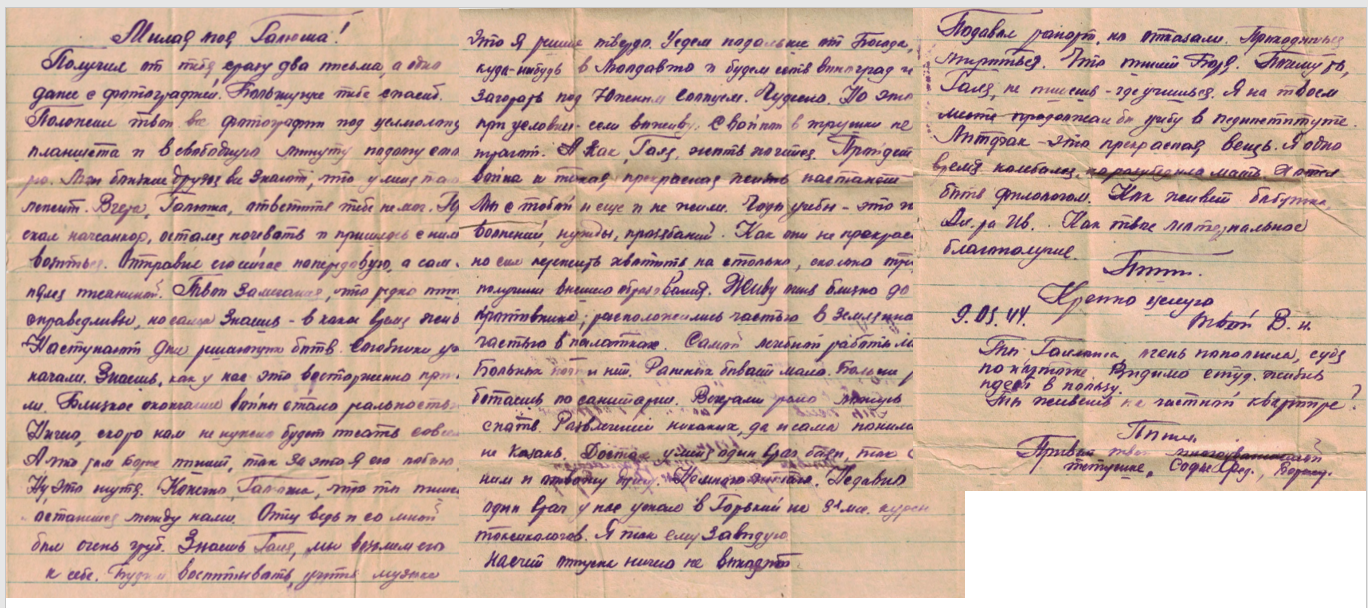 Милая моя Галюша!
Получил от тебя сразу два письма, а одно
даже с фотографией. Большущее тебе спасиб.
Положил твои все фотографии под целлолоид
планшета и в свободную минуту подолгу смо
рю. Мои близкие друзья все знают, что у меня там
лежит. Вчера, Галюша, ответить тебе не мог. Пр
ехал начсанкор, остался ночевать и пришлось с ним
возиться. Отправил его сейчас на передовую, а сам
писаниной. Твои замечания, что редко
справедливы, но сама знаешь - в какое время жив
Наступают дни решающих битв. Союзники уж
начали. Знаешь, как у нас это восторженно при
ли. Близкое окончание войны стало реальностью
Ничего, скоро нам не нужно будет писать совсем
А что зам Боре пишет, так за это я его побью.
Ну это шутя. Конечно, Галюша, что ты пишешь
останется между нами. Отец ведь и со мной
был очень груб. Знаешь Галя, мы возьмем его
к себе. Будем воспитывать, учить музыке
Это я решил твердо. Уедем подальше от
куда-нибудь в Молдавию и будем есть виноград и
загорать под Южным солнцем. Чудесно. Но это
при условии - если выживу. С войной в игрушки не
играют. А как, Галя, жить хочется. Пройдет
война и такая прекрасная жизнь настанет.
Мы с тобой и еще и не жили. Годы учебы - это
волнений, нужды, прозябаний. Как они не прекрас
но сил пережить хватить на столько, сколько
получили высшего образования. Живу очень близко до
противника; расположились частью в землянках
частью в палатках. Самой лечебной работы
Больных почти нет. Раненых бывает мало. Больше р
ботаешь по санитарии. Вечерами рано
спать. Развлечений никаких, да и сама понима
не Казань. Достал учебник один врач был, так с
ним и отвожу душу. Немного читаю. Недавно
один врач у нас уехал в Горький на 3х мес. курсы
токсикологов. Я так ему завидую.
Насчет отпуска ничего не выходит.
Подавал рапорт, но отказали. Приходиться
мириться. Что пишет Боря. Почему ты,
Галя, не пишешь - где учишься. Я на твоем
месте продолжал бы учебу в пединституте.
Литфак - это прекрасная вещь. Я одно
время колебался, но разубедила мать. Хотел
быть филологом. Как живет бабушка,
Ди. ра Ив. Как твое материальное
благополучие.
Пиши.
Крепко целую
9.05.44. твой В. и.
Ты, Галюша, очень пополнела, судя
по карточке. Видимо студ. жизнь
идет в пользу.
Ты живешь на частной квартире?
Пиши.
Привет твоей многоуважаемой
тетушке, Софье Фед., Борису.